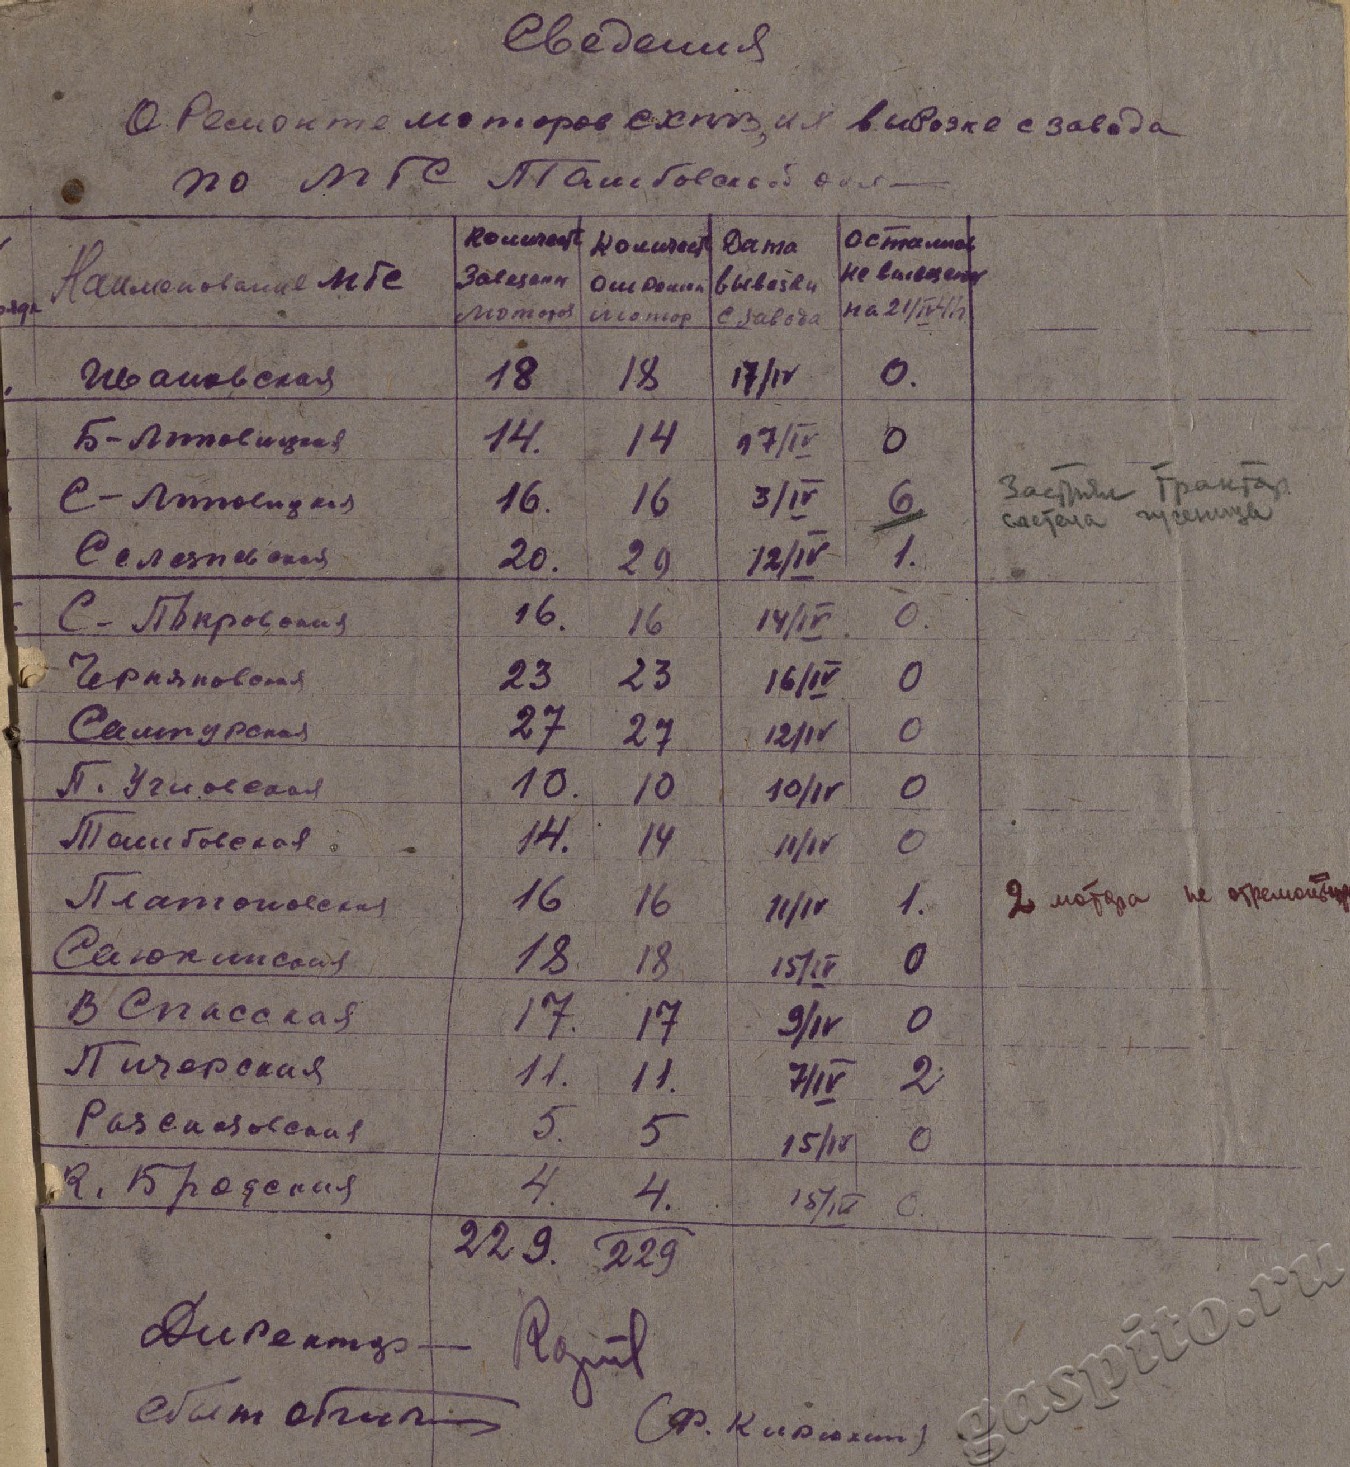 Сведения
О Ремонте моторов СХТЗ, их вывозке с завода
по МТС Тамбовской обл
Наименование МТС
Количест Завезенн моторов
Количест отремон мотор
Дата вывозки с завода
Остались не вывезены на 21/IV
Ивановская 18 18 17/IV 0.
Б-Липовицкая 14. 14 17/IV 0
С-Липовицкая 16. 16 3/IV 6 Застрял Трактор
гусеница
Селезневская 20. 20 12/IV 1.
С-Покровская 16. 16 14/IV 0.
Черняновская 23 23 16/IV 0
Сампурская 27 27 12/IV 0
П. Углиовская 10. 10 10/IV 0
Тамбовская 14. 14 11/IV 0
Платоновская 16 16 11/IV 1. 2 мотора не отремонтир
Саюкинская 18 18 15/IV 0
В Спасская 17. 17 9/IV 0
Пичерская 11. 11. 7/IV 2
Разсказовская 5. 5 15/IV 0
К. Бродская 4. 4. 15/IV 0.
229. 229
Директор —
(Ф. Кирюхин)
gaspito.ru